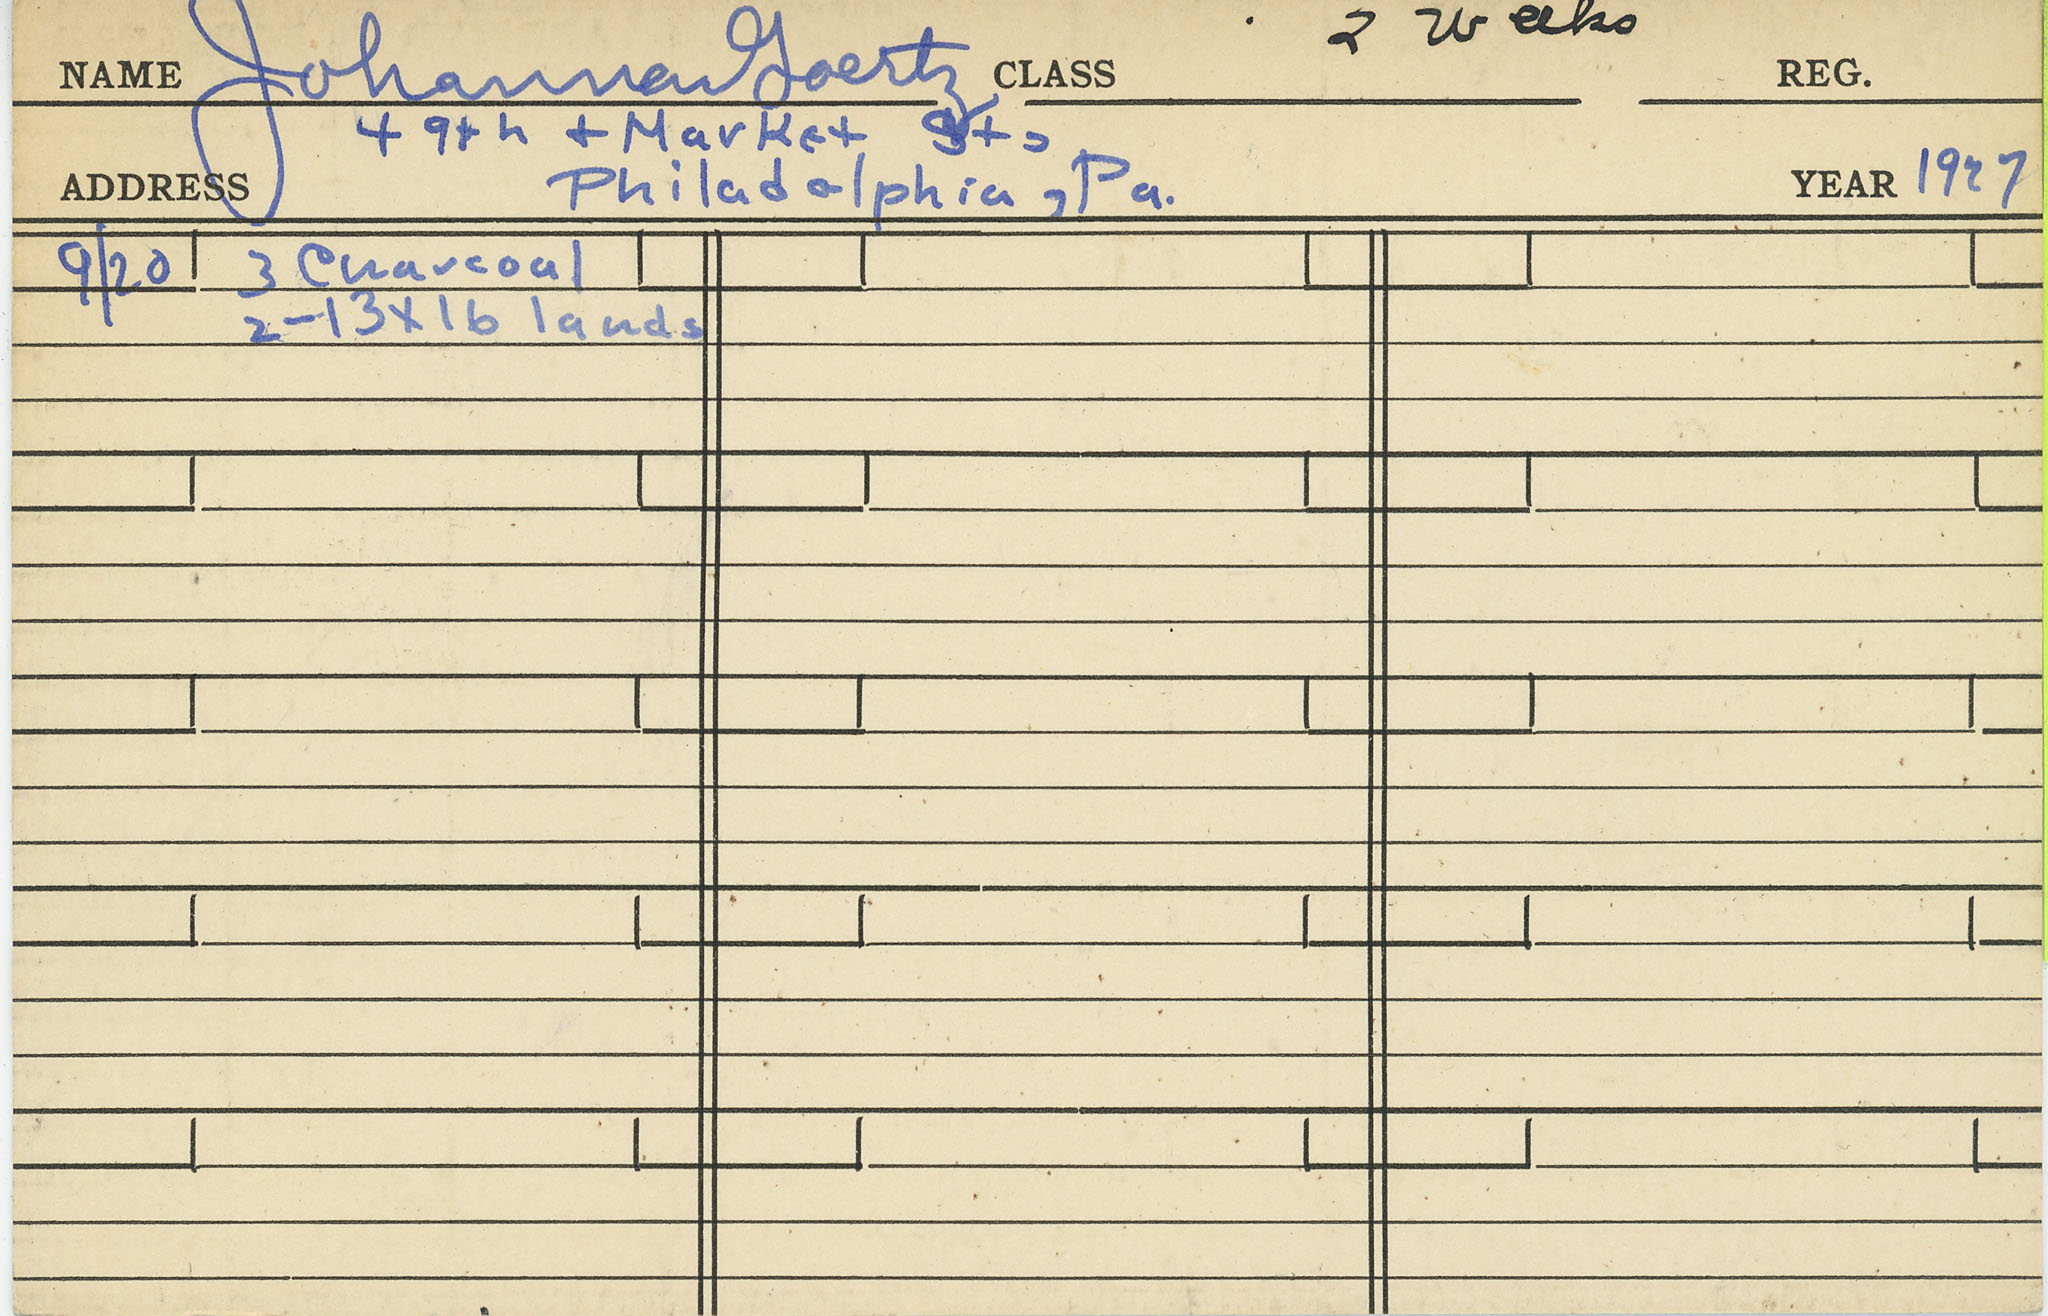 2 Weeks
NAME Johanna Goertz CLASS REG.
49th + Market Sts
ADDRESS Philadelphia, Pa. YEAR 1927
9/20 3 Charcoal
2-13x16 lands